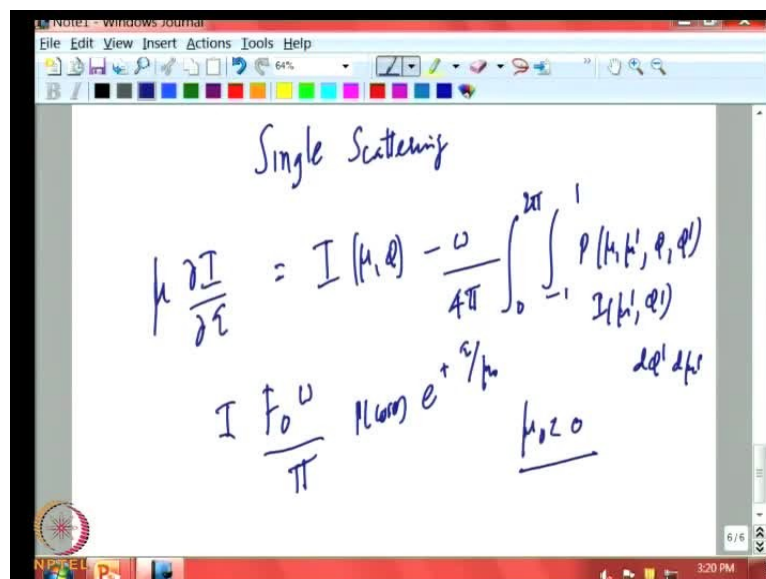 Note1 - Windows Journal
File Edit View Insert Actions Tools Help
64%
B I
Single Scattering
μ ∂I/∂τ = I (μ, φ) - ω/4π ∫₀^2π ∫₋₁^1 P(μ, μ', φ, φ')
I(μ', φ')
dφ' dμ'
I F₀ ω/π P(cosθ) e^+τ/μ₀
μ₀ < 0
6/6
NPTEL
3:20 PM